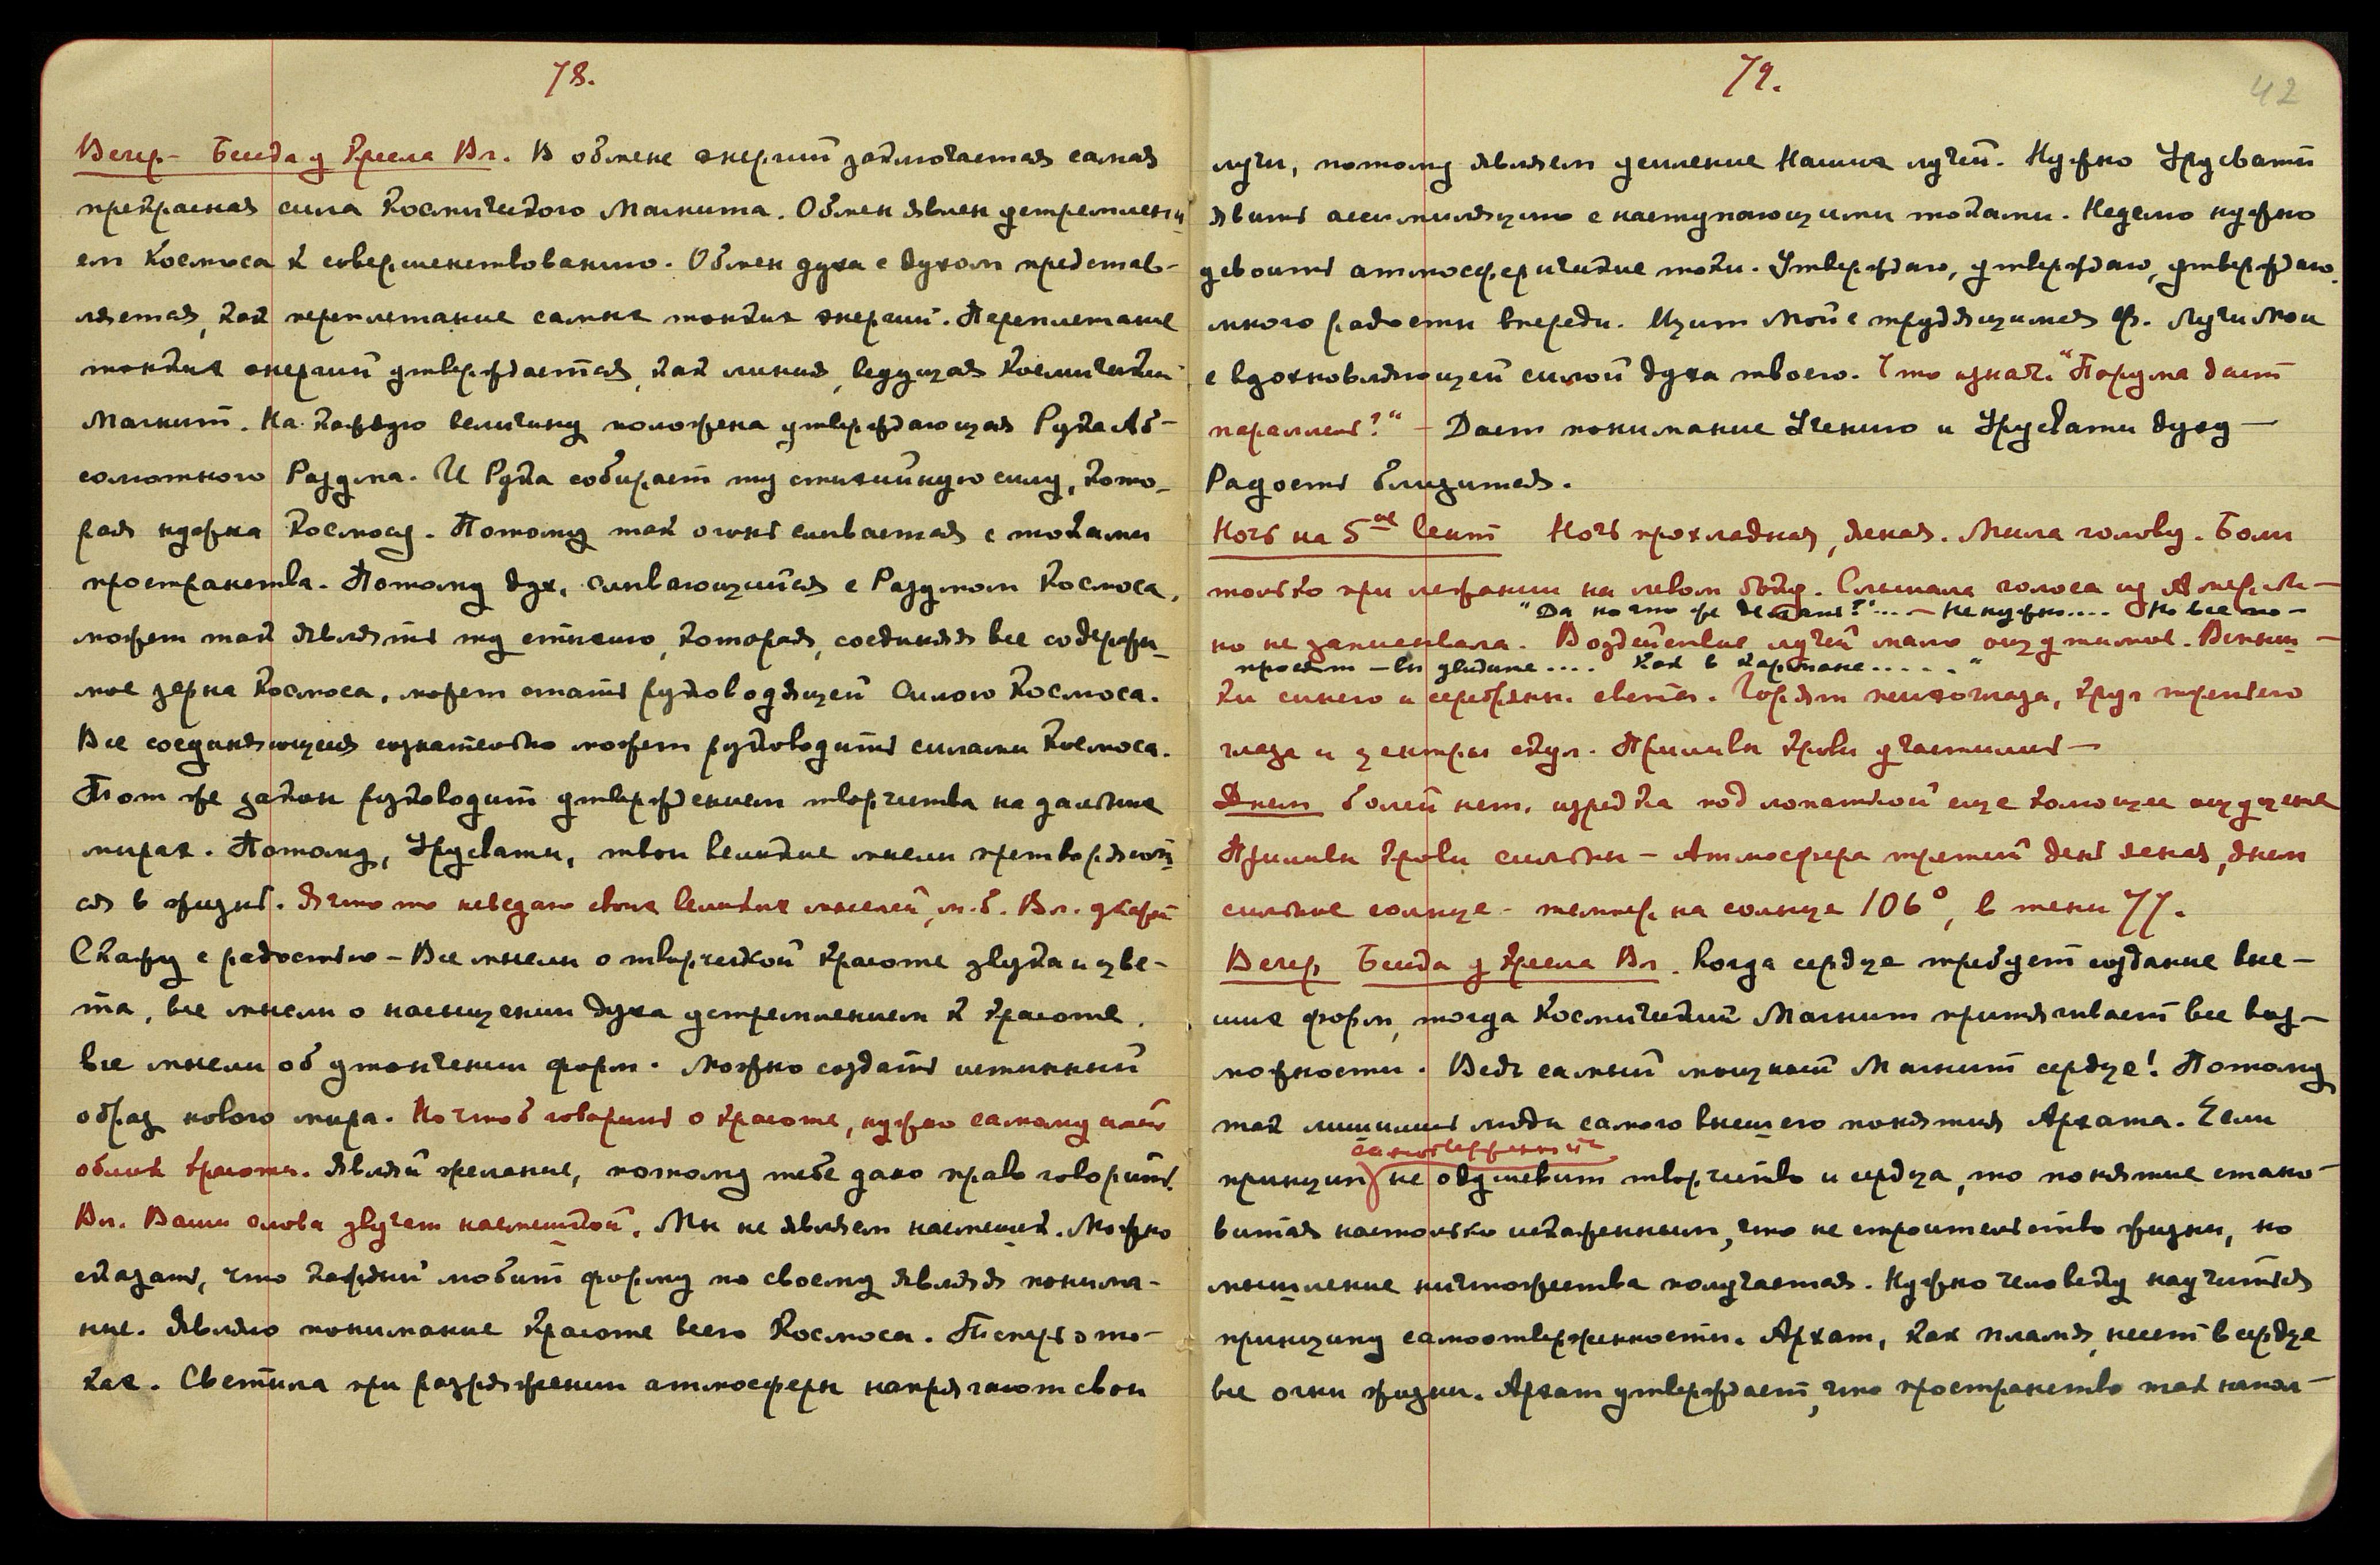 78.
Вечер – Беседа у Кресла Вл. В обмене энергий заключается самая
прекрасная сила Космического Магнита. Обмен явлен устремлени
ем Космоса к совершенствованию. Обмен духа с духом представ-
ляется, как переплетание самых тонких энергий. Переплетание
тонких энергий утверждается, как линия, ведущая Космический
Магнит. На каждую величину положена утверждающая Рука Аб-
солютного Разума. И Рука собирает ту стихийную силу, кото-
рая нужна Космосу. Потому так огонь сливается с токами
пространства. Потому дух, сливающийся с Разумом Космоса,
может так являть ту стихию, которая, соединяя все содержи-
мое зерна Космоса, может стать руководящей Силою Космоса.
Все соединяющееся сознательно может руководить силами Космоса.
Тот же закон руководит утверждением творчества на дальних
мирах. Потому, Урусвати, твои великие мысли претворяют
ся в жизнь. Я что то неведаю своих великих мыслей, м.б. Вл. укажет
Скажу с радостью – Все мысли о творческой красоте звука и цве-
та, все мысли о насыщении духа устремлением к красоте,
все мысли об утончении форм. Можно создать истинный
образ нового мира. Но чтоб говорить о красоте, нужно самому иметь
облик красоты. Являй желание, потому тебе дано право говорить.
Вл. Ваши слова звучат насмешкой. Мы не являем насмешек. Можно
сказать, что каждый любит форму по своему являя понима-
ние. Являю понимание красоте всего Космоса. Теперь о то-
ках. Светила при разряжении атмосферы напрягают свои
79.
42
лучи, потому являем усиление Наших лучей. Нужно Урусвати
явить ассимиляцию с наступающими токами. Неделю нужно
усвоить атмосферические токи. Утверждаю, утверждаю, утверждаю,
много радости впереди. Щит Мой с трудящимся Ф. Лучи Мои
с вдохновляющей силой духа твоего. Что означ. "Порума дает
параллель?" – Дает понимание Учению и Урусвати духу –
Радость близится.
Ночь на 5ое Сент Ночь прохладная, ясная. Мыла голову. Боли
только при лежании на левом боку. Слышала голоса из Америки –
"Да но что же делать?"... – Не нужно.... Но все по-
но не записывала. Воздействие лучей мало ощутимое. Вспыш-
просят – вы увидите.... Как в кармане....."
ки синего и серебрян. света. Горят психоглаза, круг третьего
глаза и центры скул. Приливы крови участились –
Днем болей нет, изредка под лопаткой еще колющее ощущение
Приливы крови сильны – Атмосфера третий день ясная, днем
сильное солнце – темпер. на солнце 106°, в тени 77.
Вечер Беседа у Кресла Вл. Когда сердце требует создание выс-
ших форм, тогда Космический Магнит притягивает все воз-
можности. Ведь самый мощный Магнит сердце! Потому
так лишились люди самого высшего понятия Архата. Если
самоотверженный
принцип не одушевит творчество и сердца, то понятие стано-
вится настолько искаженным, что не строительство жизни, но
мышление ничтожества получается. Нужно человеку научиться
принципу самоотверженности. Архат, как пламя, несет в сердце
все огни жизни. Архат утверждает, что пространство так напол-